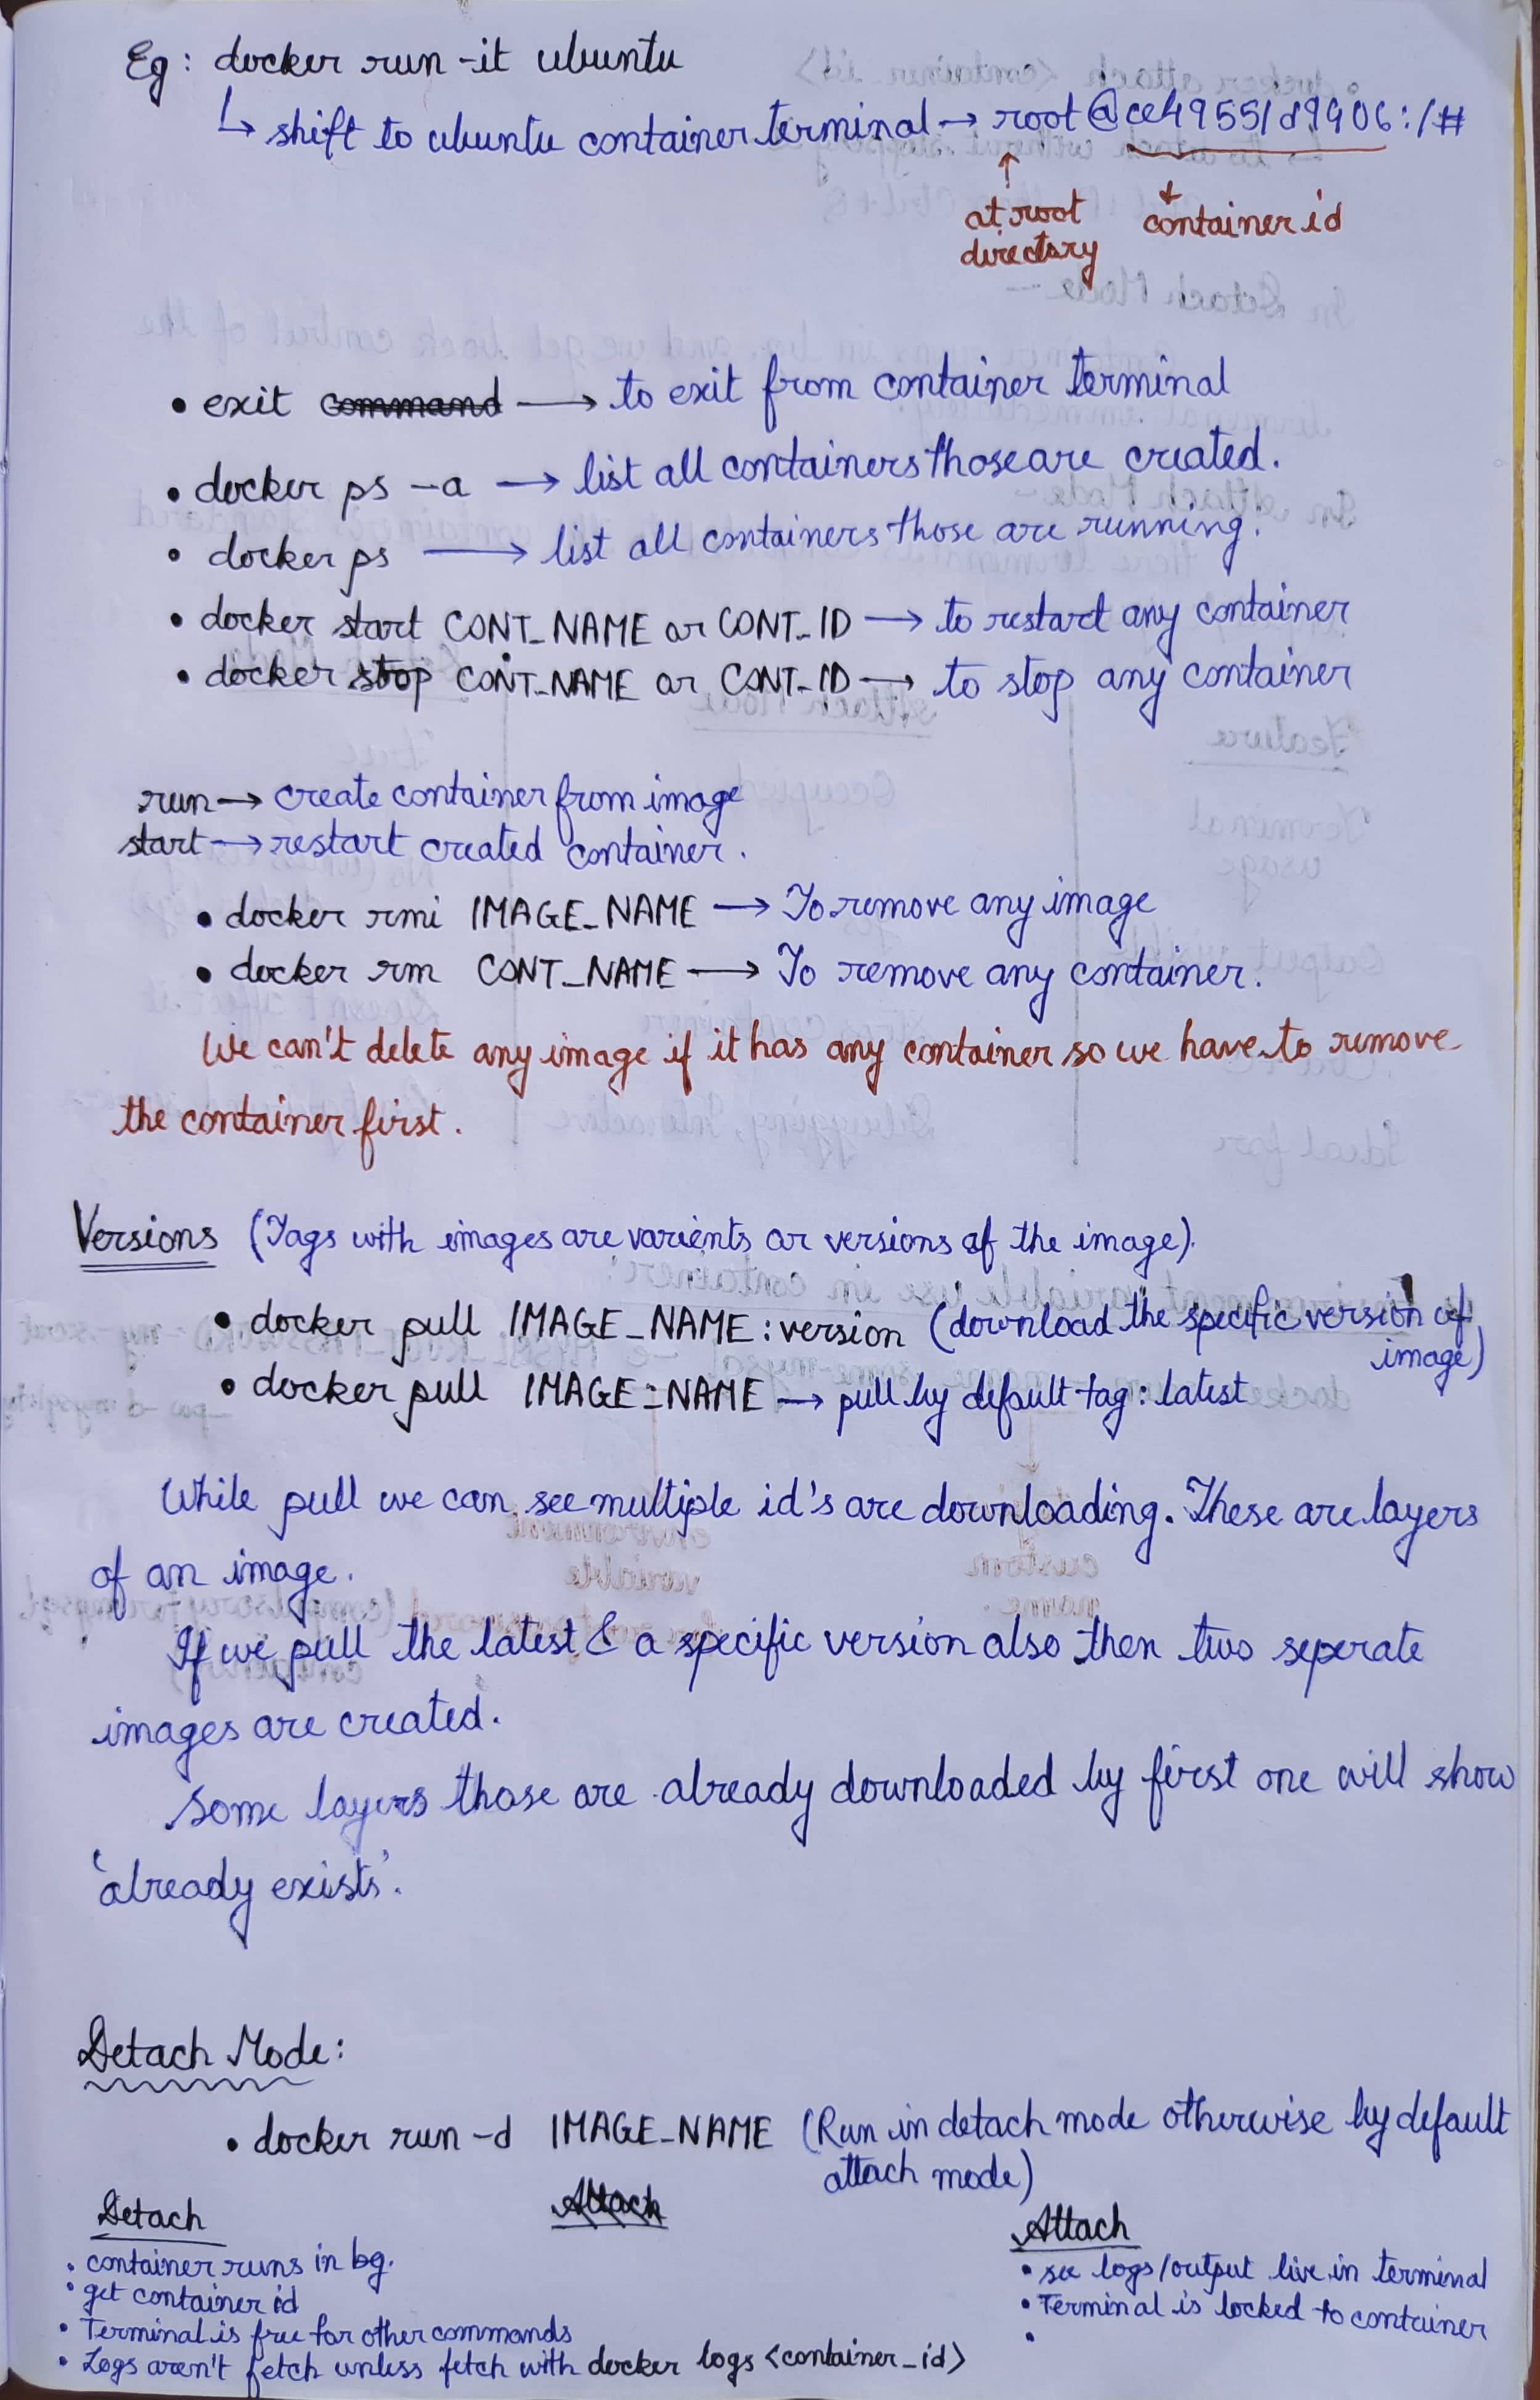 Eg: docker run -it ubuntu
↳ shift to ubuntu container terminal → root@ce49551d9906:/#
↑
at root directory
↓
container id
• exit command → to exit from container terminal
• docker ps -a → list all containers those are created.
• docker ps → list all containers those are running.
• docker start CONT_NAME or CONT_ID → to restart any container
• docker stop CONT_NAME or CONT_ID → to stop any container
run → create container from image
start → restart created container.
• docker rmi IMAGE_NAME → To remove any image
• docker rm CONT_NAME → To remove any container.
We can't delete any image if it has any container so we have to remove
the container first.
Versions (Tags with images are varients or versions of the image).
• docker pull IMAGE_NAME : version (download the specific version of
image)
• docker pull IMAGE_NAME → pull by default tag : latest
While pull we can see multiple id's are downloading. These are layers
of an image.
If we pull the latest & a specific version also then two seperate
images are created.
Some layers those are already downloaded by first one will show
'already exists'.
Detach Mode:
• docker run -d IMAGE_NAME (Run in detach mode otherwise by default
attach mode)
Detach
Attach
• container runs in bg.
• get container id
• Terminal is free for other commands
• Logs aren't fetch unless fetch with docker logs <container_id>
Attach
• see logs/output live in terminal
• Terminal is locked to container
•